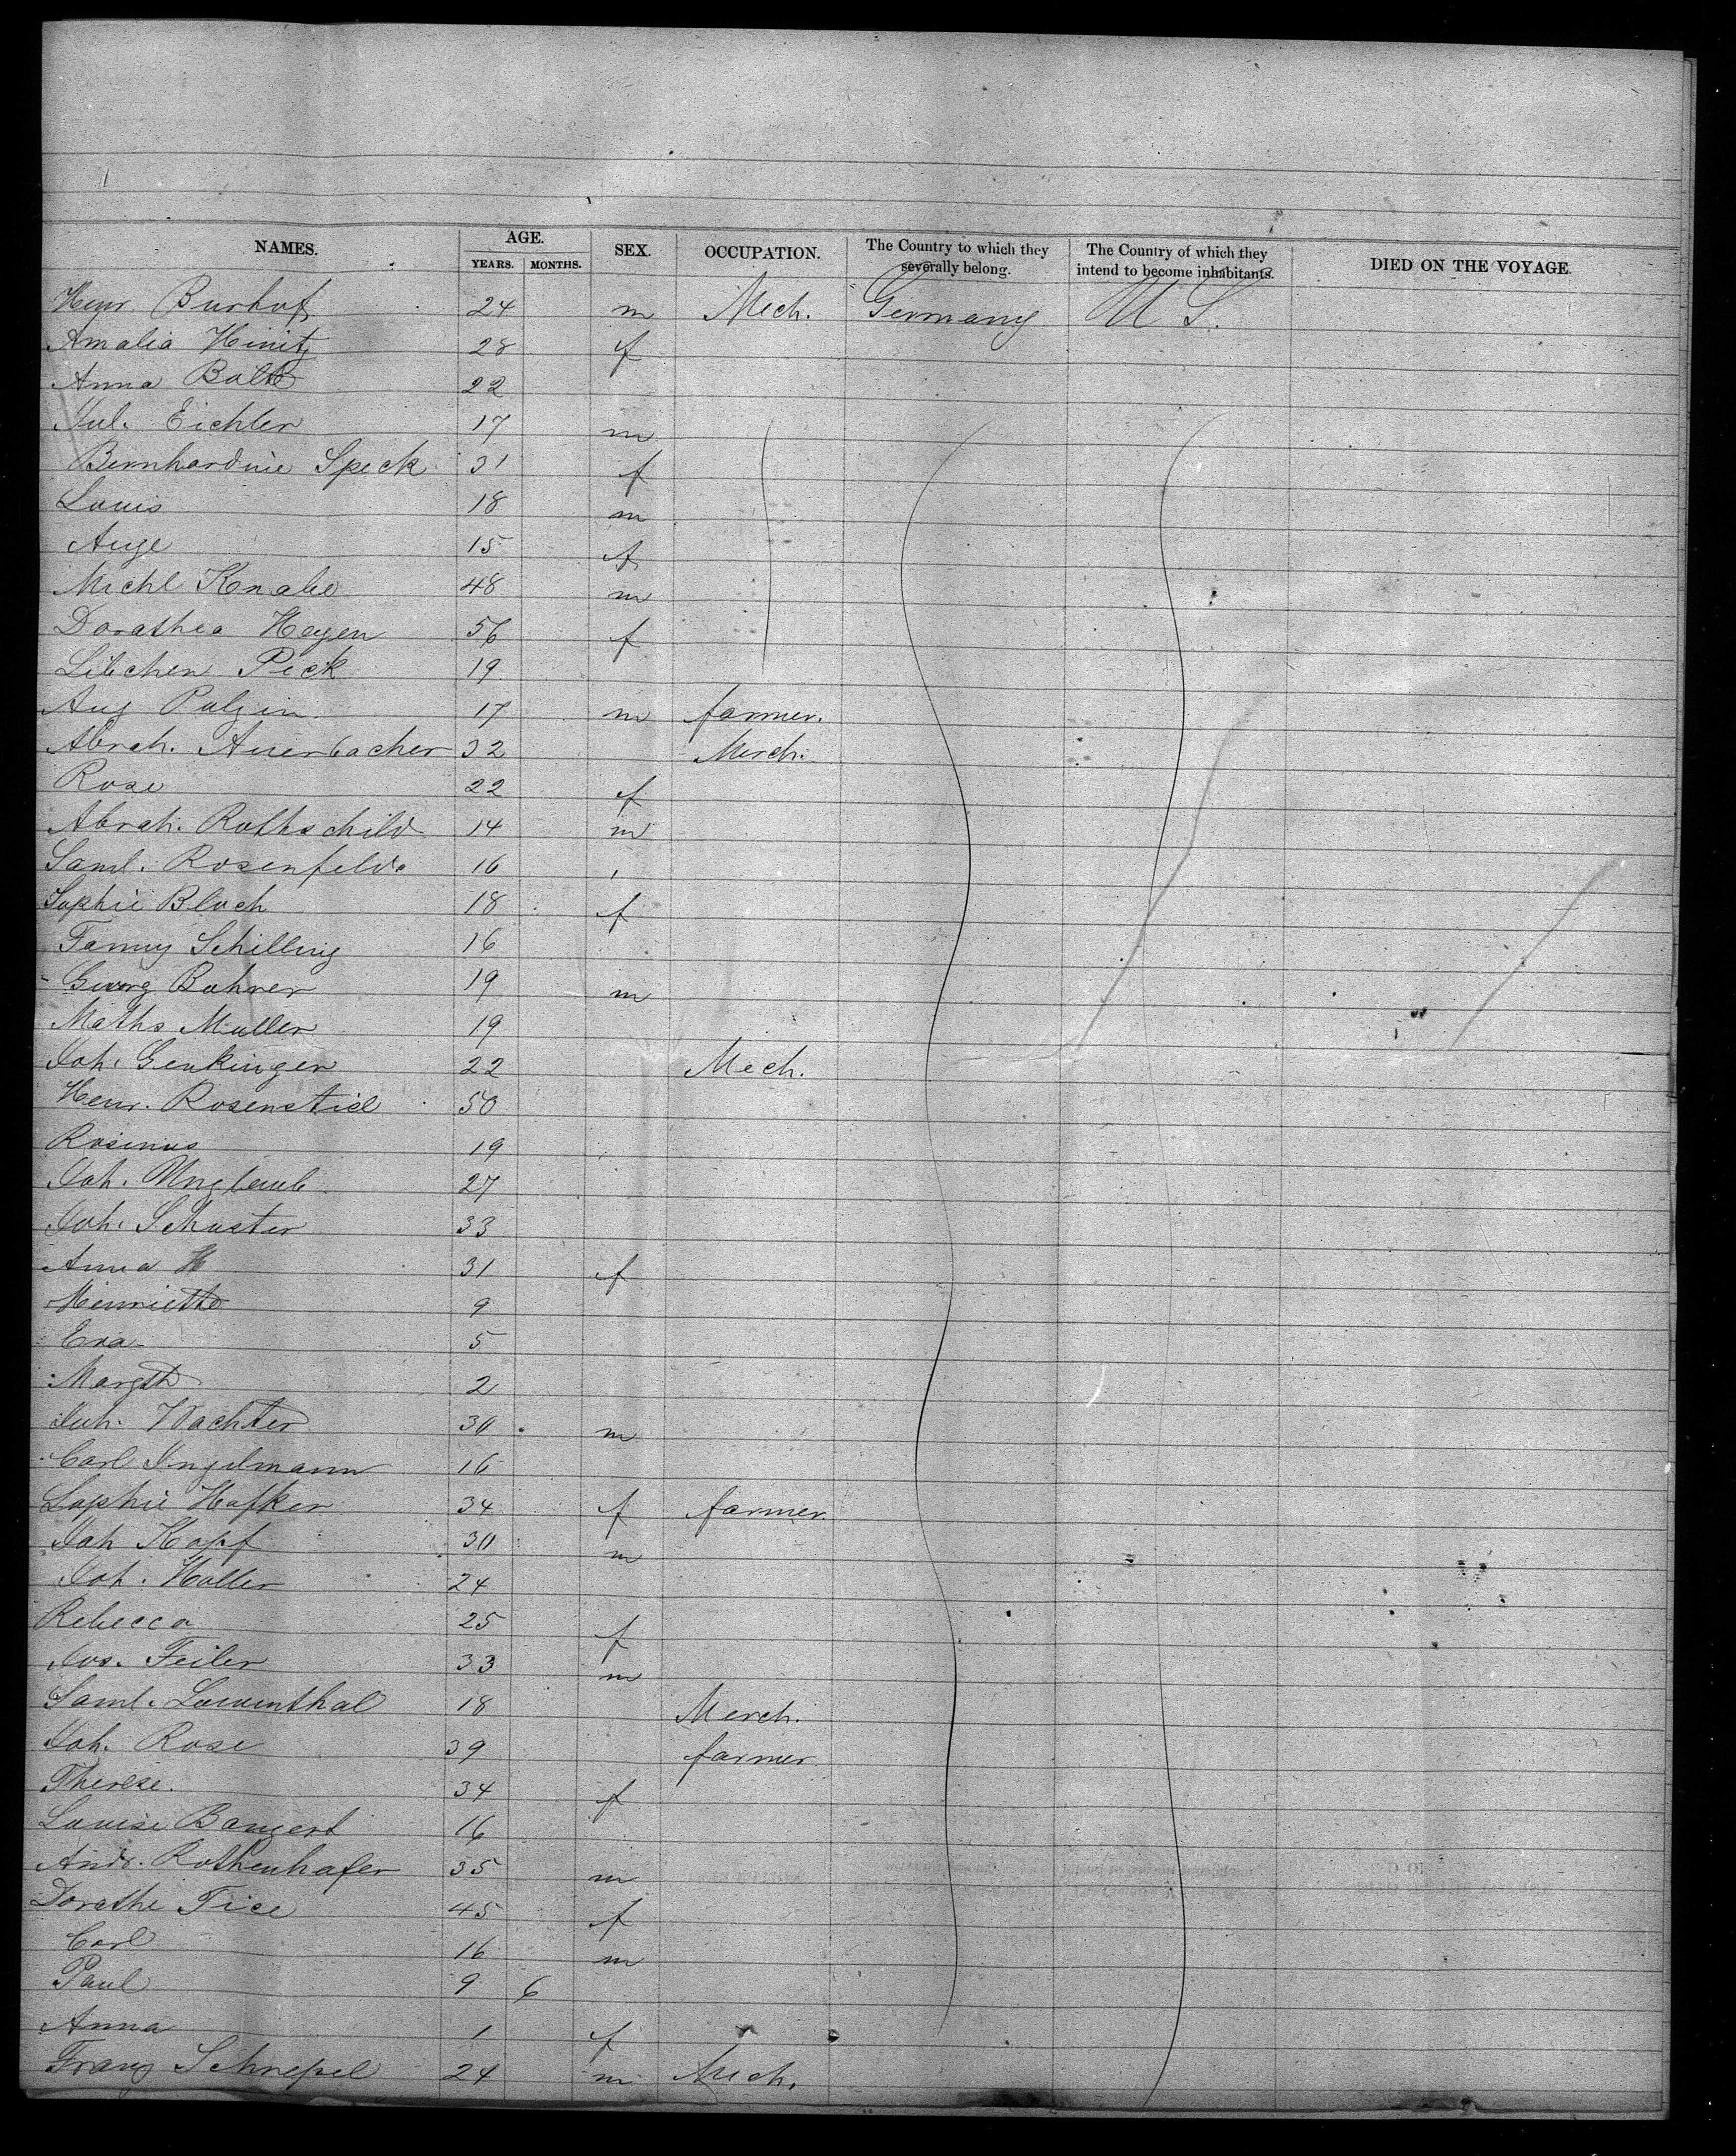 NAMES. AGE. SEX. OCCUPATION. The Country to which they severally belong. The Country of which they intend to become inhabitants. DIED ON THE VOYAGE.
YEARS. MONTHS.
Henr. Burhof 24 m Mech. Germany U S.
Amalia Hinitz 28 f
Anna Bolte 22
Jul. Eichler 17 m
Bernhardine Speck 31 f
Louis 18 m
Auge 15 f
Michl Knabe 48 m
Dorathea Heyen 56 f
Libchen Peck 19
Aug Pulzin 17 m farmer.
Abrah. Auerbacher 32 Merch.
Rose 22 f
Abrah. Rothschild 14 m
Saml. Rosenfeld 16
Sophie Bloch 18 f
Fanny Schilling 16
Georg Bohrer 19 m
Maths Muller 19
Joh. Genkinger 22 Mech.
Henr. Rosenstiel 50
Rosinus 19
Joh. Unglaub 27
Joh. Schuster 33
Anna H 31 f
Henriette 9
Eva 5
Margth 2
Joh. Wachter 30 m
Carl Ingelmann 16
Sophie Hofker 34 f farmer.
Joh Kopf 30 m
Joh. Holler 24
Rebecca 25 f
Jos. Feiler 33 m
Saml. Lowenthal 18 Merch.
Joh. Rose 39 farmer
Therese. 34 f
Louise Bangert 16
Andr. Rothenhafer 35 m
Dorathe Tice 45 f
Carl 16 m
Paul 9 6
Anna 1 f
Franz Schnepel 24 m Mech.